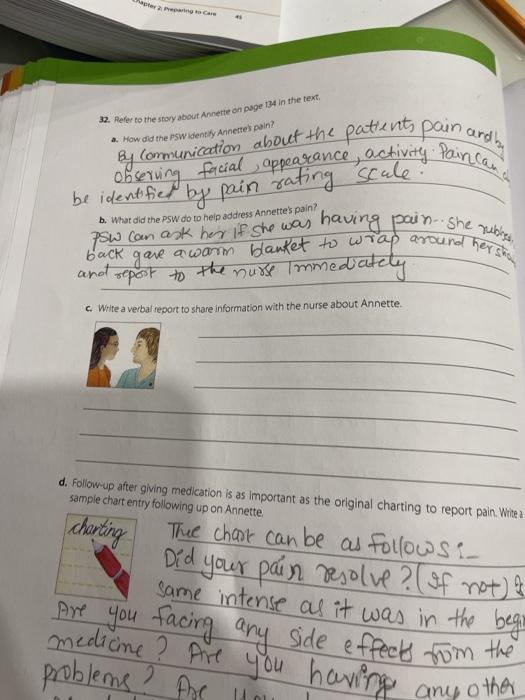 Chapter 2: Preparing to Care
45
32. Refer to the story about Annette on page 134 in the text.
a. How did the PSW identify Annette's pain?
By Communication about the patient's pain and by
observing facial, appearance, activity. Pain can
be identified by pain rating scale.
b. What did the PSW do to help address Annette's pain?
PSW can ask her if she was having pain. She
back gave a warm blanket to wrap around her
and report to the nurse Immediately.
c. Write a verbal report to share information with the nurse about Annette.
d. Follow-up after giving medication is as important as the original charting to report pain. Write a
sample chart entry following up on Annette.
charting
The chart can be as follows :-
Did your pain resolve? (If not)
same intense as it was in the
Are you facing any side effects from the
medicine? Are you having any other
problems? Are